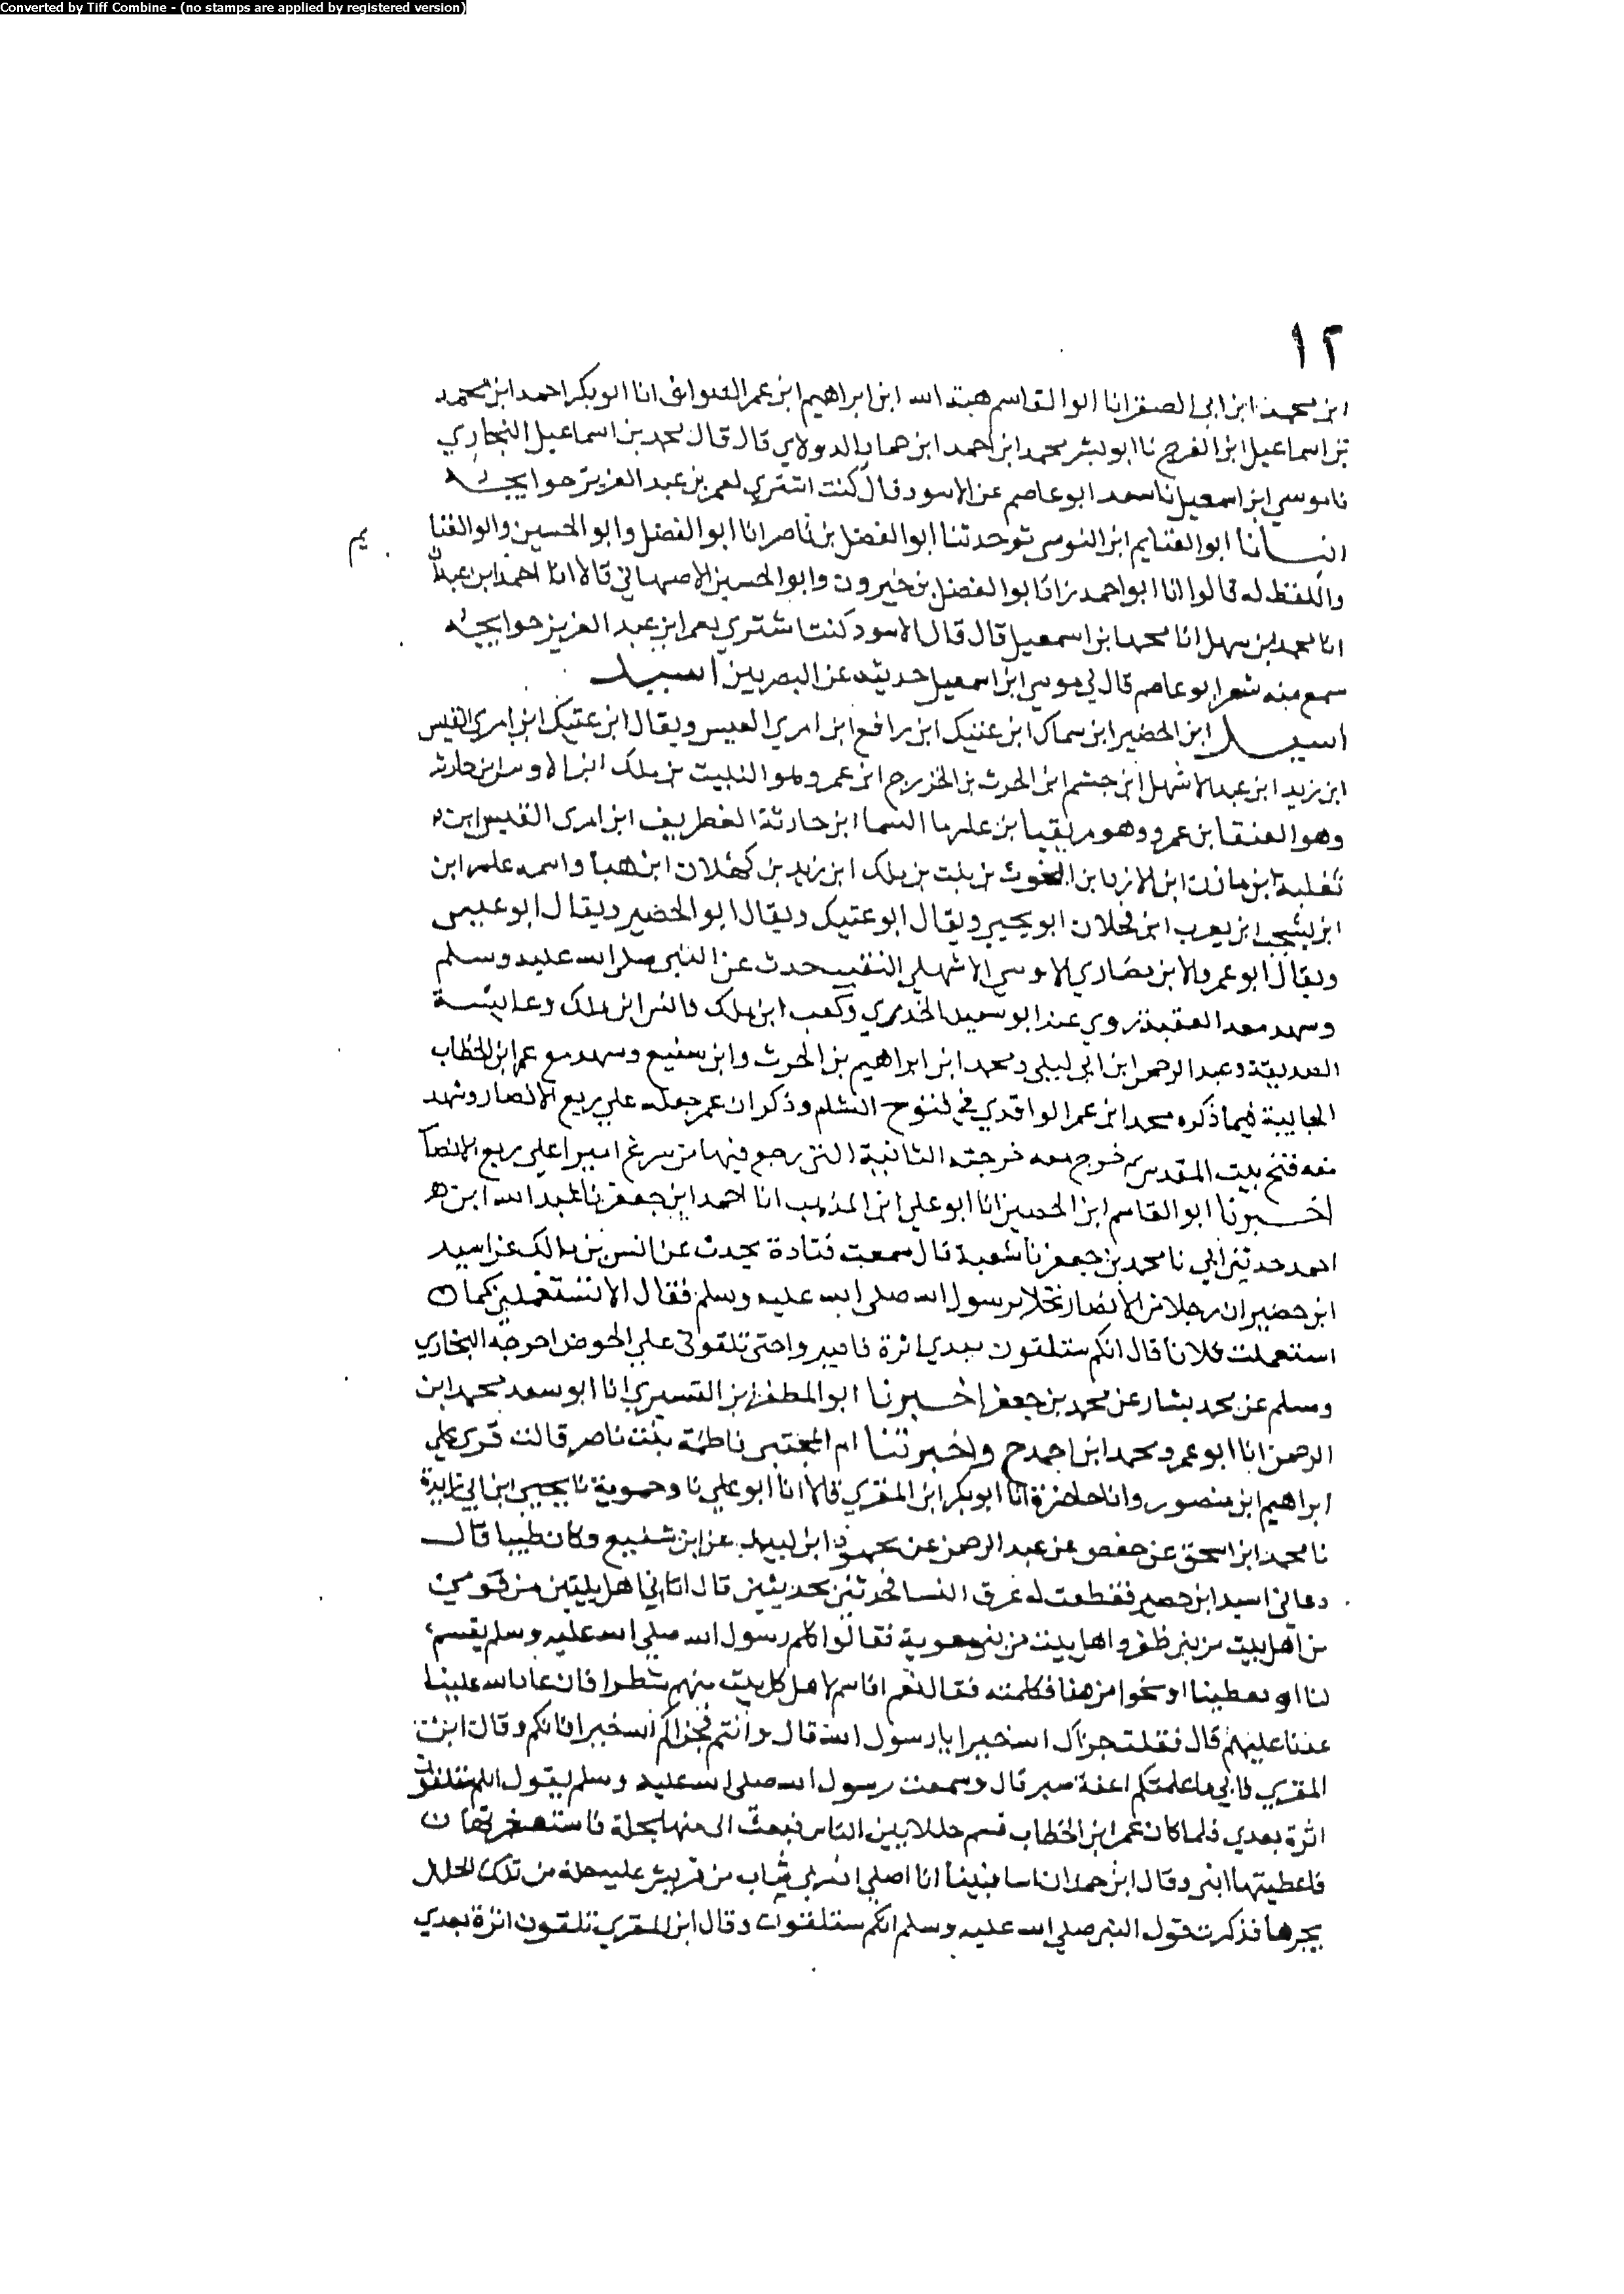 Converted by Tiff Combine - (no stamps are applied by registered version)
١٢
ابن محمد ابن ابي الصقر انا ابو القاسم هبة الله ابن ابراهيم ابن عمر الصواف انا ابو بكر احمد ابن محمد
بن اسماعيل ابن الفرج نا ابو بشر محمد ابن احمد ابن حماد الدولابي قال قال محمد بن اسماعيل البخاري
نا موسي ابن اسمعيل نا سعد ابو عاصم عن الاسود قال كنت اشتري لعمر بن عبد العزيز حوايجه
انبـــانا ابو الغنايم ابن النرسي ثم حدثنا ابو الفضل بن ناصر انا ابو الفضل وابو الحسين وابو الغنا
يم
واللفظ له قالوا انا ابو احمد زاد ابو الفضل بن خيرون وابو الحسين الاصبهاني قالا انا احمد ابن عبدان
انا محمد بن سهل انا محمد ابن اسمعيل قال قال الاسود كنت اشتري لعمر ابن عبد العزيز حوايجه
سمع منه شعر ابو عاصم قال لي موسي ابن اسمعيل حديثه عن البصريين اسيد
اسيـــد ابن الحضير ابن سماك ابن عتيك ابن رافع ابن امري القيس ويقال ابن عتيك ابن امري القيس
ابن زيد ابن عبد الاشهل ابن جشم ابن الحرث بن الخزرج ابن عمرو وهو النبيت بن ملك ابن الاوس ابن حارثه
وهو العنقا بن عمرو وهو مزيقيا بن عامر ما السما ابن حارثة الغطريف ابن امرى القيس ابن
ثعلبة ابن مازن ابن الازد ابن الغوث بن نبت بن ملك ابن زيد بن كهلان ابن سبا واسمه عامر ابن
ابن يشجب ابن يعرب ابن قحلان ابو يحيي ويقال ابو عتيك ويقال ابو الحضير ويقال ابو عيسى
ويقال ابو عمرو الانصاري الاوسي الاشهلي النقيب حدث عن النبي صلى الله عليه وسلم
وشهد معه العقبة روي عنه ابو سعيد الخدري وكعب ابن ملك وانس ابن ملك وعايشة
الصديقة وعبد الرحمن ابن ابي ليلى ومحمد ابن ابراهيم بن الحرث وابن شفيع وشهد مع عمر ابن الخطاب
الجابية فيما ذكره محمد ابن عمر الواقدي في فتوح الشام وذكر ان عمر جعله علي ربع الانصار وشهد
معه فتح بيت المقدس ثم خرج معه خرجته الثانية التي رجع فيها من سرغ اميرا علي ربع الانصار
اخـــبرنا ابو القاسم ابن الحصين انا ابو علي ابن المذهب انا احمد ابن جعفر نا عبد الله ابن
احمد حدثني ابي نا محمد بن جعفر نا شعبة قال سمعت قتادة يحدث عن انس بن مالك عن اسيد
ابن حضير ان رجلا من الانصار تخلا برسول الله صلى الله عليه وسلم فقال الا تستعملني كما
استعملت فلانا قال انكم ستلقون بعدي اثرة فاصبروا حتى تلقوني علي الحوض اخرجه البخاري
ومسلم عن محمد بشار عن محمد بن جعفر اخـــبرنا ابو المظفر ابن القشيري انا ابو سعد محمد ابن
الرحمن انا ابو عمرو محمد ابن احمد ح واخبرتنا ام المجتبى فاطمة بنت ناصر قالت قري علي
ابراهيم ابن منصور وانا حاضرة انا ابو بكر ابن المقري قالا انا ابو علي نا وحموية نا يحيي ابن ابي زايدة
نا محمد ابن اسحق عن حفص عن عبد الرحمن عن محمود ابن لبيد عن ابن شفيع وكان طبيبا قال
دعاني اسيد ابن حصير فقطعت له عرق النسا فحدثني بحديثين قال اتاني اهل بيتين من قومي
من اهل بيت من بني ظفر واهل بيت من بني معوية فقالوا كلم رسول الله صلي الله عليه وسلم يقسم
لنا او يعطينا او نحوا من هذا فكلمته فقال نعم اقاسم لاهل كل بيت منهم شطرا فان عاد الله علينا
عدنا عليهم قال فقلت جزاك الله خيرا يا رسول الله قال وانتم فجزاكم الله خيرا فانكم وقال ابن
المقري فاني ما علمتكم اعفة صبر قال وسمعت رسول الله صلى الله عليه وسلم يقول انكم ستلقون
اثرة بعدي فلما كان عمر ابن الخطاب قسم حللا بين الناس فبعث الى منها بحلة فاستصغرتها
فاعطيتها ابني وقال ابن حمدان اسا فبينا انا اصلي اذ مر بي شاب من قريش عليه حلة من تلك الحلل
يجرها فذكرت قول النبي صلي الله عليه وسلم انكم ستلقون وقال ابن المقري تلقون اثرة بعدي